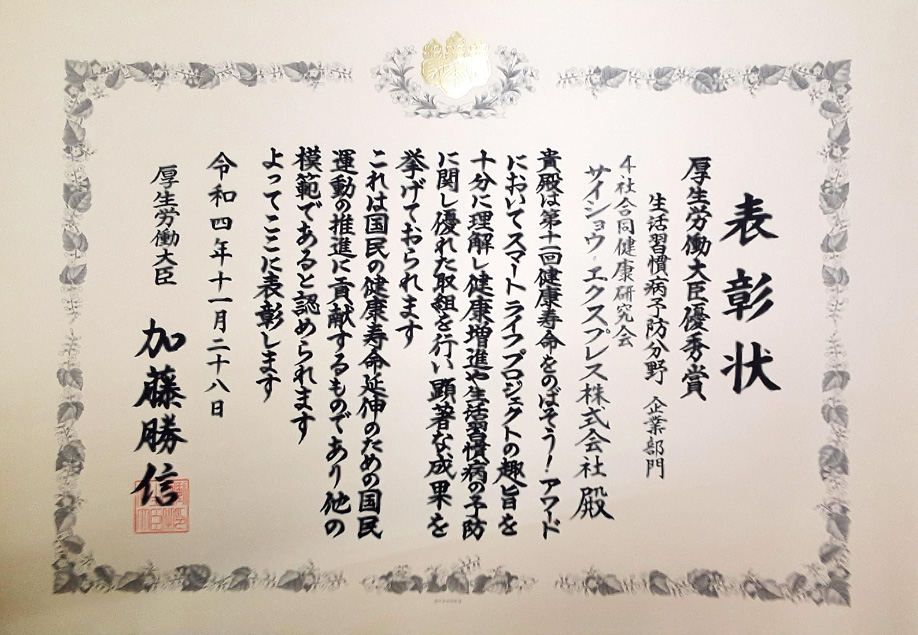 表彰状
厚生労働大臣優秀賞
生活習慣病予防分野 企業部門
4社合同健康研究会
サイショウ.エクスプレス株式会社 殿
貴殿は第十一回健康寿命をのばそう!アワード
においてスマートライフプロジェクトの趣旨を
十分に理解し健康増進や生活習慣病の予防
に関し優れた取組を行い顕著な成果を
挙げておられます
これは国民の健康寿命延伸のための国民
運動の推進に貢献するものであり他の
模範であると認められます
よってここに表彰します
令和四年十一月二十八日
厚生労働大臣
加藤勝信